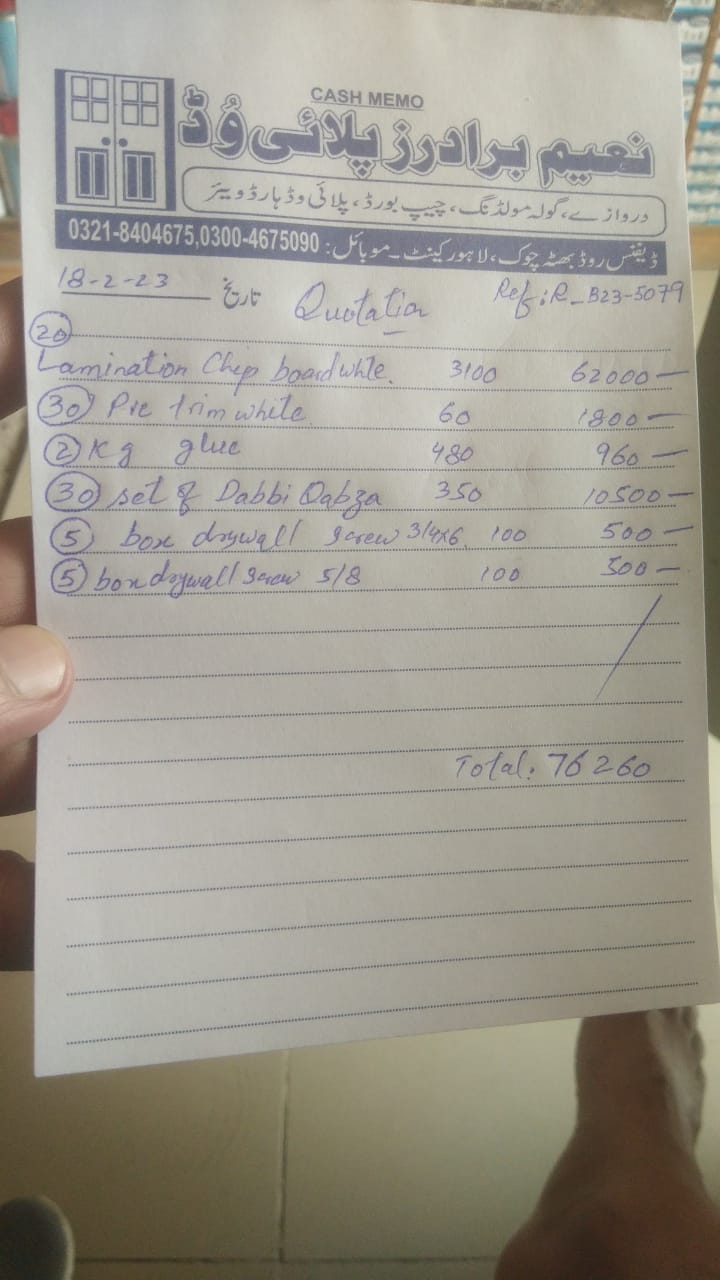 CASH MEMO
نعیم برادرز پلائی وُڈ
دروازے، گولہ مولڈنگ، چیپ بورڈ، پلائی وڈ ہارڈویئر
ڈیفنس روڈ بھٹہ چوک، لاہور کینٹ۔ موبائل: 0321-8404675,0300-4675090
18-2-23 تاریخ Quotation Ref: R_B23-5079
20
Lamination Chip board white. 3100 62000
30 Pvc trim white 60 1800
2 Kg glue 480 960
30 set of Dabbi Qabza 350 10500
5 box drywall screw 3/4x6 100 500
5 box drywall screw 5/8 100 500
Total: 76260